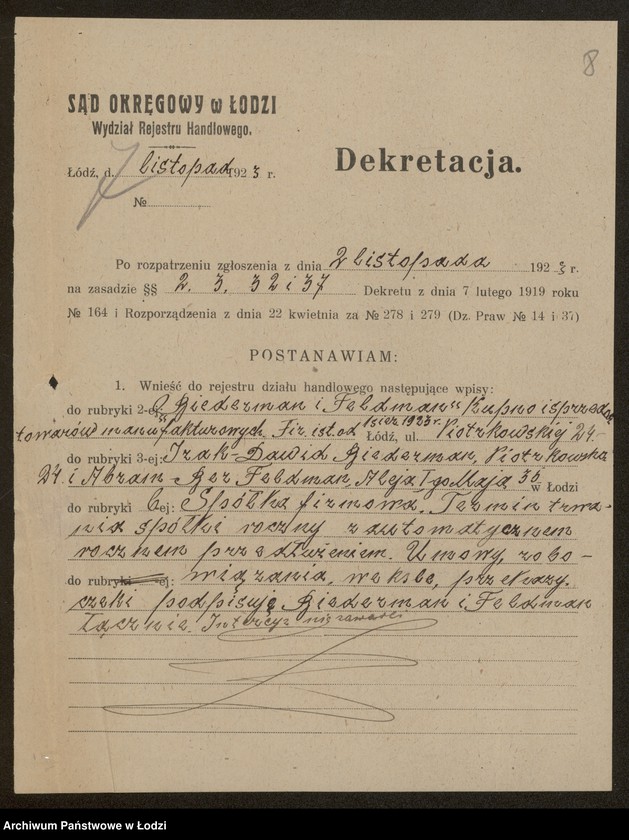 8
SĄD OKRĘGOWY w ŁODZI
Wydział Rejestru Handlowego.
Łódź, d. 7 listopad 1923 r.
Dekretacja.
№
Po rozpatrzeniu zgłoszenia z dnia 2 listopada 1923 r.
na zasadzie §§ 2. 3. 32 i 37 Dekretu z dnia 7 lutego 1919 roku
№ 164 i Rozporządzenia z dnia 22 kwietnia za № 278 i 279 (Dz. Praw № 14 i 37)
POSTANAWIAM:
1. Wnieść do rejestru działu handlowego następujące wpisy:
do rubryki 2-ej: "Biederman i Feldman" Kupno i sprzedaż
towarów manufakturowych. Fir. ist. od 1 sier. 1923 r. Łódź, ul. Piotrkowskiej 24-
do rubryki 3-ej: Izak-Dawid Biederman, Piotrkowska
24 i Abram Ber Feldman, Aleja I go Maja 36 w Łodzi
do rubryki 6ej: Spółka firmowa. Termin trwa-
nia spółki roczny z automatycznem
rocznem przedłużeniem. Umowy, zobo-
do rubryki -ej: wiązania, weksle, przekazy.
czeki podpisują Biederman i Feldman
łącznie. Intercyz nie zawarli
Archiwum Państwowe w Łodzi